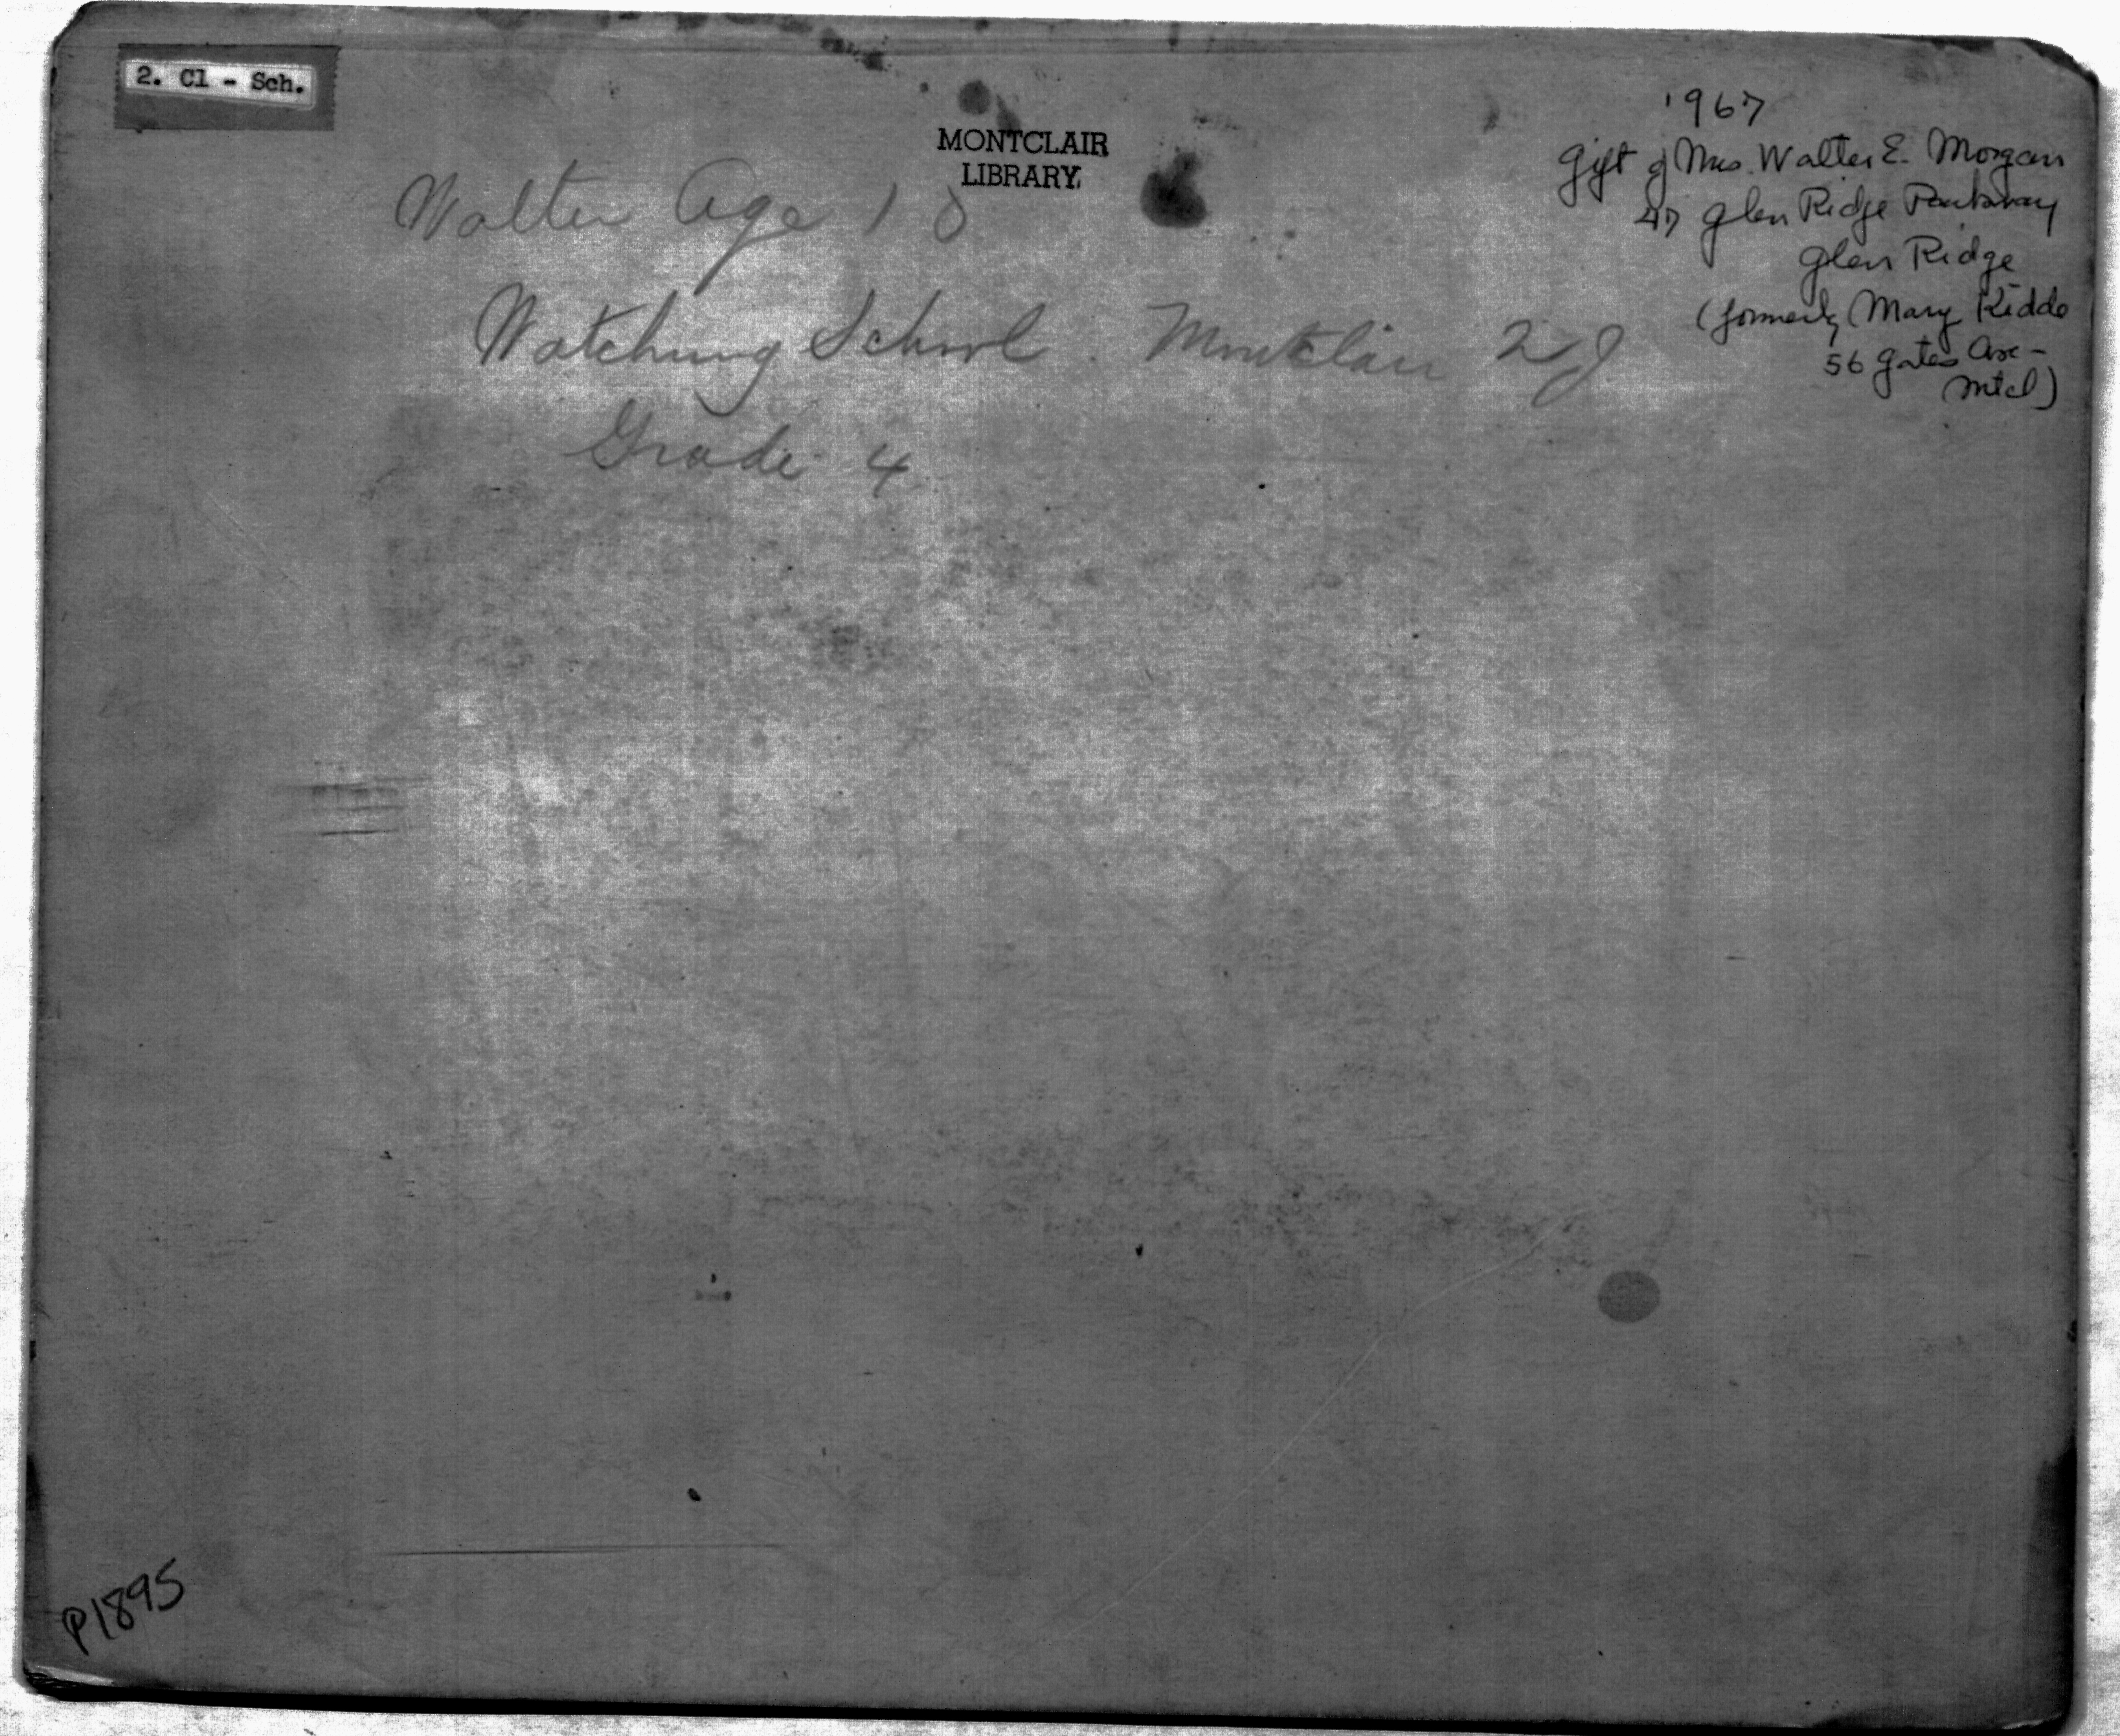 2. Cl - Sch.
MONTCLAIR
LIBRARY
1967
Gift of Mrs. Walter E. Morgan
47 Glen Ridge Parkway
Glen Ridge
(formerly Mary Kiddo
56 Gates Ave-
Mtcl)
Walter Age 10
Watchung School. Montclair NJ
Grade 4
P1895